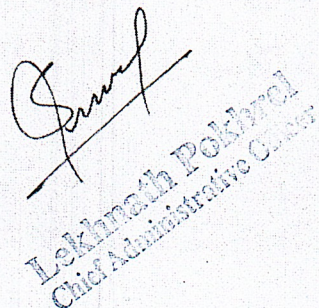 Lekhnath Pokhrel
Chief Administrative Officer